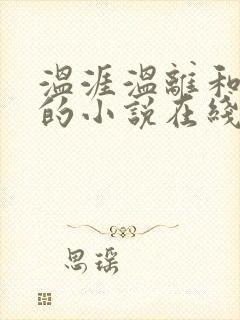 温涯温離和
的小说在綫
思瑶